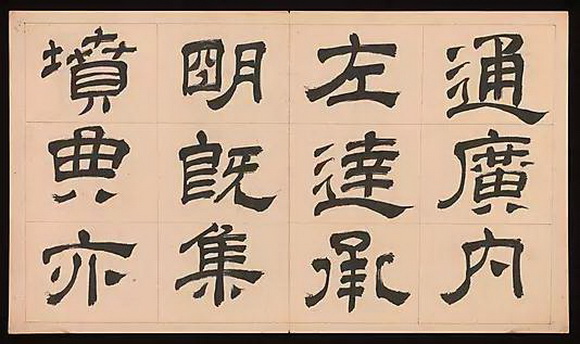 通廣內
左達承
朙既集
墳典亦